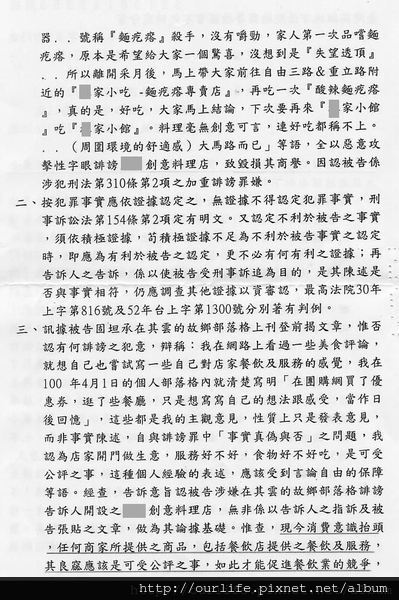 器．．號稱『麵疙瘩』殺手，沒有嚼勁，家人第一次品嚐麵
疙瘩，原本是希望給大家一個驚喜，沒想到是『失望透頂』
．．所以離開采月後，馬上帶大家前往自由三路&重立路附
近的『 家小吃 -麵疙瘩專賣店』，再吃一次『酸辣麵疙瘩
』，真的是，好吃，大家馬上結論，下次要再來『 家小館
』吃『 家小館』。料理毫無創意可言，連好吃都稱不上。
．．（周圍環境的舒適感）大馬路而已」等語，全以惡意攻
擊性字眼誹謗 創意料理店，致毀損其商譽。因認被告係
涉犯刑法第310條第2項之加重誹謗罪嫌。
二、按犯罪事實應依證據認定之，無證據不得認定犯罪事實，刑
事訴訟法第154條第2項定有明文。又認定不利於被告之事實
，須依積極證據，苟積極證據不足為不利於被告事實之認定
時，即應為有利於被告之認定，更不必有何有利之證據；再
告訴人之告訴，係以使被告受刑事訴追為目的，是其陳述是
否與事實相符，仍應調查其他證據以資審認，最高法院30年
上字第816號及52年台上字第1300號分別著有判例。
三、訊據被告固坦承在其雲的故鄉部落格上刊登前揭文章，惟否
認有何誹謗之犯意，辯稱：我在網路上看過一些美食評論，
就想自己也嘗試寫一些自己對店家餐飲及服務的感覺，我在
100 年4月1日的個人部落格內就清楚寫明「在團購網買了優
惠券，逛了些餐廳，只是想寫寫自己的想法跟感受，當作日
後回憶」，這些都是我的主觀意見，性質上只是發表意見，
而非事實陳述，自與誹謗罪中「事實真偽與否」之問題，我
認為店家開門做生意，服務好不好，食物好不好吃，是可受
公評之事，這種個人經驗的表述，應該受到言論自由的保障
等語。經查，告訴意旨認被告涉嫌在其雲的故鄉部落格誹謗
告訴人開設之 創意料理店，無非係以告訴人之指訴及被
告張貼之文章，做為其論據基礎。惟查，現今消費意識抬頭
，任何商家所提供之商品，包括餐飲店提供之餐飲及服務，
其良窳應該是可受公評之事，如此才能促進餐飲業的競爭，
http://ourlife.pixnet.net/album